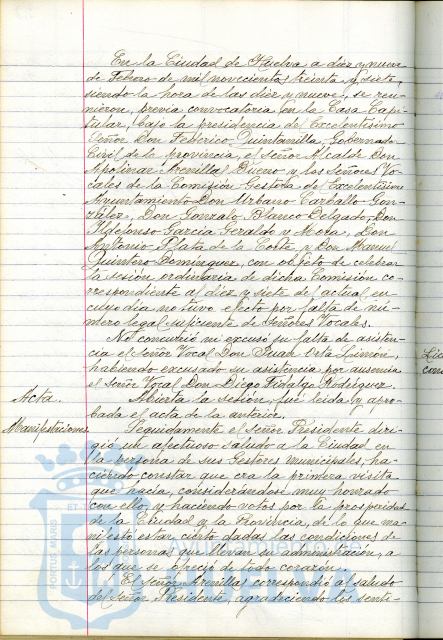 En la Ciudad de Huelva a diez y nueve
de Febrero de mil novecientos treinta y siete
siendo la hora de las diez y nueve, se reu-
nieron, previa convocatoria en la Casa Capi-
tular, bajo la presidencia del Excelentísimo
Señor Don Federico Quintanilla, Gobernador
Civil de la provincia, el Señor Alcalde Don
Apolinar Arenillas Bueno y los Señores Vo-
cales de la Comisión Gestora del Excelentísimo
Ayuntamiento Don Urbano Carballo Gon-
zález, Don Gonzalo Blanco Delgado, Don
Ildefonso García Geraldo y Mora, Don
Antonio Plata de la Corte y Don Manuel
Quintero Domínguez, con objeto de celebrar
la sesión ordinaria de dicha Comisión co-
rrespondiente al diez y siete del actual en
cuyo día no tuvo efecto por falta de nú-
mero legal suficiente de Señores Vocales.
No concurrió ni excusó su falta de asisten-
cia el Señor Vocal Don Juan Limón,
habiendo excusado su asistencia por ausencia
el Señor Vocal Don Diego Fidalgo Rodríguez.
Acta. Abierta la sesión, fué leida y apro-
bada el acta de la anterior.
Manifestaciones. Seguidamente el Señor Presidente diri-
gió un afectuoso saludo a la Ciudad en
la persona de sus Gestores municipales, ha-
ciendo constar que era la primera visita
que hacía, considerándose muy honrado
con ello, y haciendo votos por la prosperidad
de la Ciudad y la Provincia, de lo que ma-
nifestó estar cierto dadas las condiciones de
las personas que llevan su administración, a
los que se ofreció de todo corazón.
El Señor Arenillas correspondió al saludo
del Señor Presidente, agradeciendo los senti-
PORTUS MARIS ET